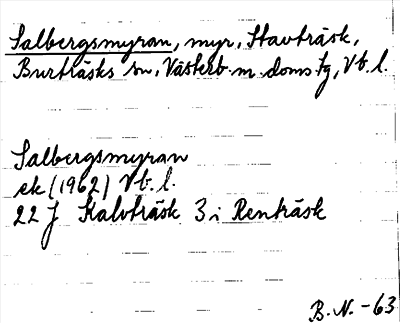 Salbergsmyran, myr, Stavträsk,
Burträsks sn, Västerb. m. doms tg, Vb. l.
Salbergsmyran
ek (1962) Vb. l.
22 J Kalvträsk 3 i Renträsk
B. N. -63